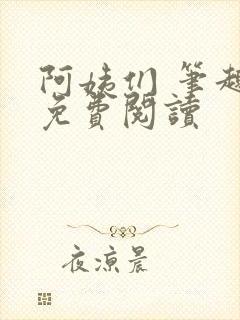 阿姨们 筆趣
免費閱讀
夜涼晨